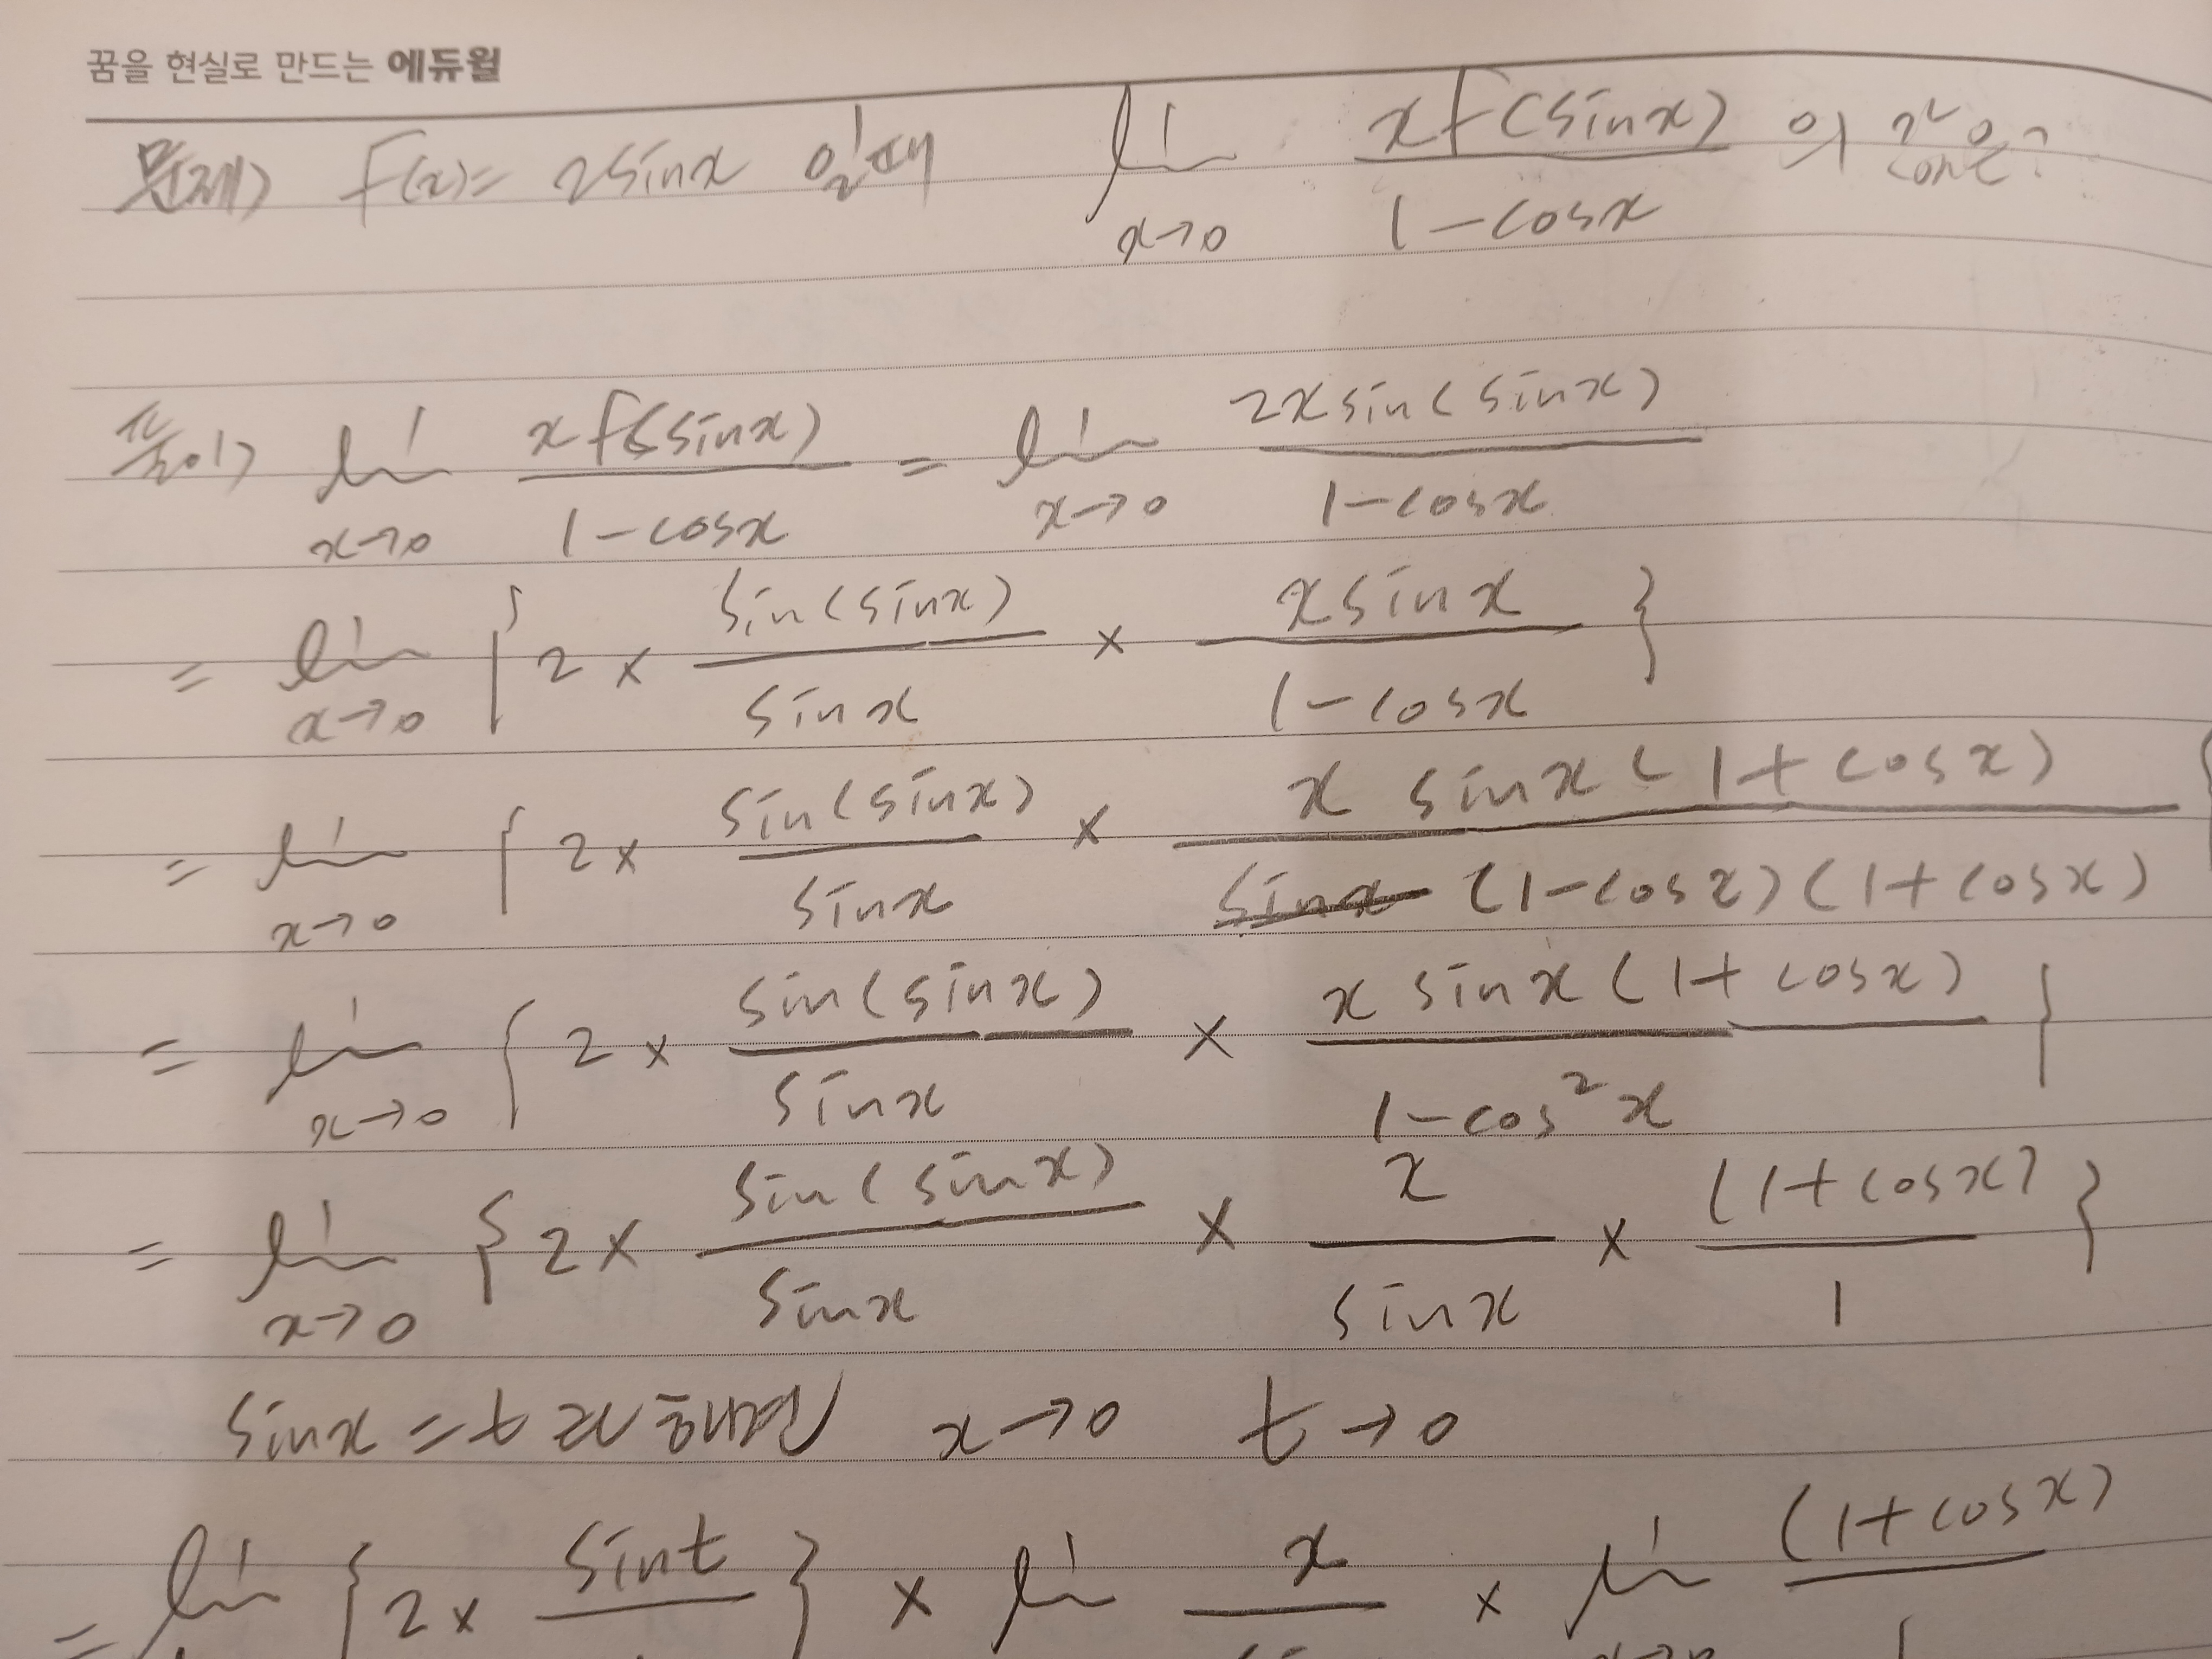 꿈을 현실로 만드는 에듀윌
문제) f(x)= 2sinx 일때 lim x→0 xf(sinx) / 1-cosx 의 값은?
풀이) lim x→0 xf(sinx) / 1-cosx = lim x→0 2xsin(sinx) / 1-cosx
= lim x→0 { 2 × sin(sinx) / sinx × xsinx / 1-cosx }
= lim x→0 { 2 × sin(sinx) / sinx × x sinx(1+cosx) / (1-cosx)(1+cosx) }
= lim x→0 { 2 × sin(sinx) / sinx × x sinx(1+cosx) / 1-cos²x }
= lim x→0 { 2 × sin(sinx) / sinx × x / sinx × (1+cosx) / 1 }
sinx = t 치환하면 x→0 t→0
= lim { 2 × sint } × lim x × lim (1+cosx)